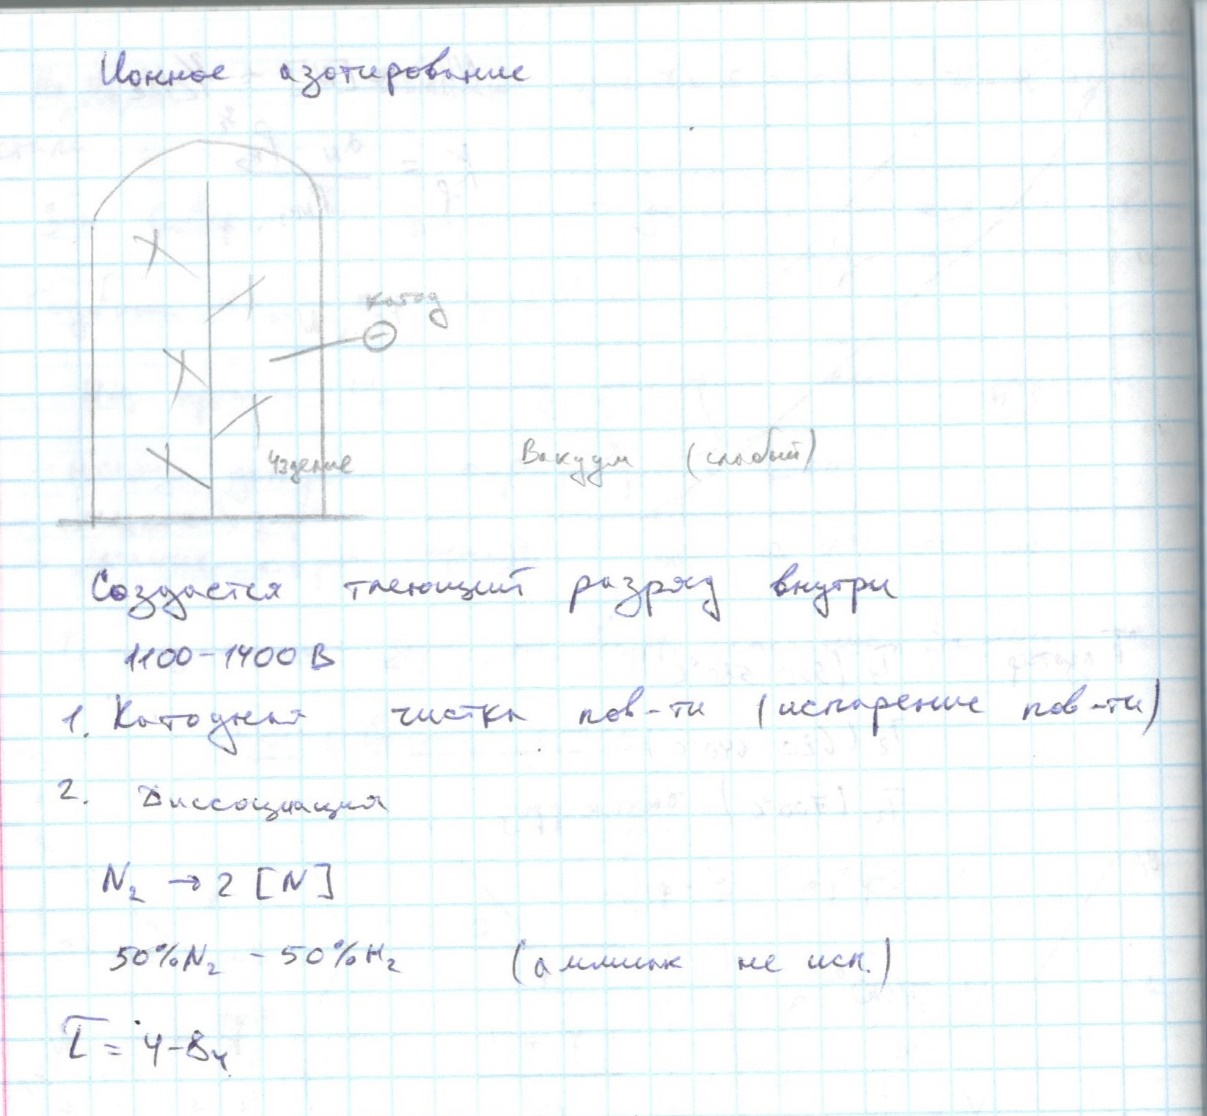 Ионное азотирование
катод
−
Изделие
Вакуум (слабый)
Создается тлеющий разряд внутри
1100-1400 В
1. Катодная чистка пов-ти (испарение пов-ти)
2. Диссоциация
N₂ → 2 [N]
50%N₂ - 50%H₂ (аммиак не исп.)
τ = 4-8ч